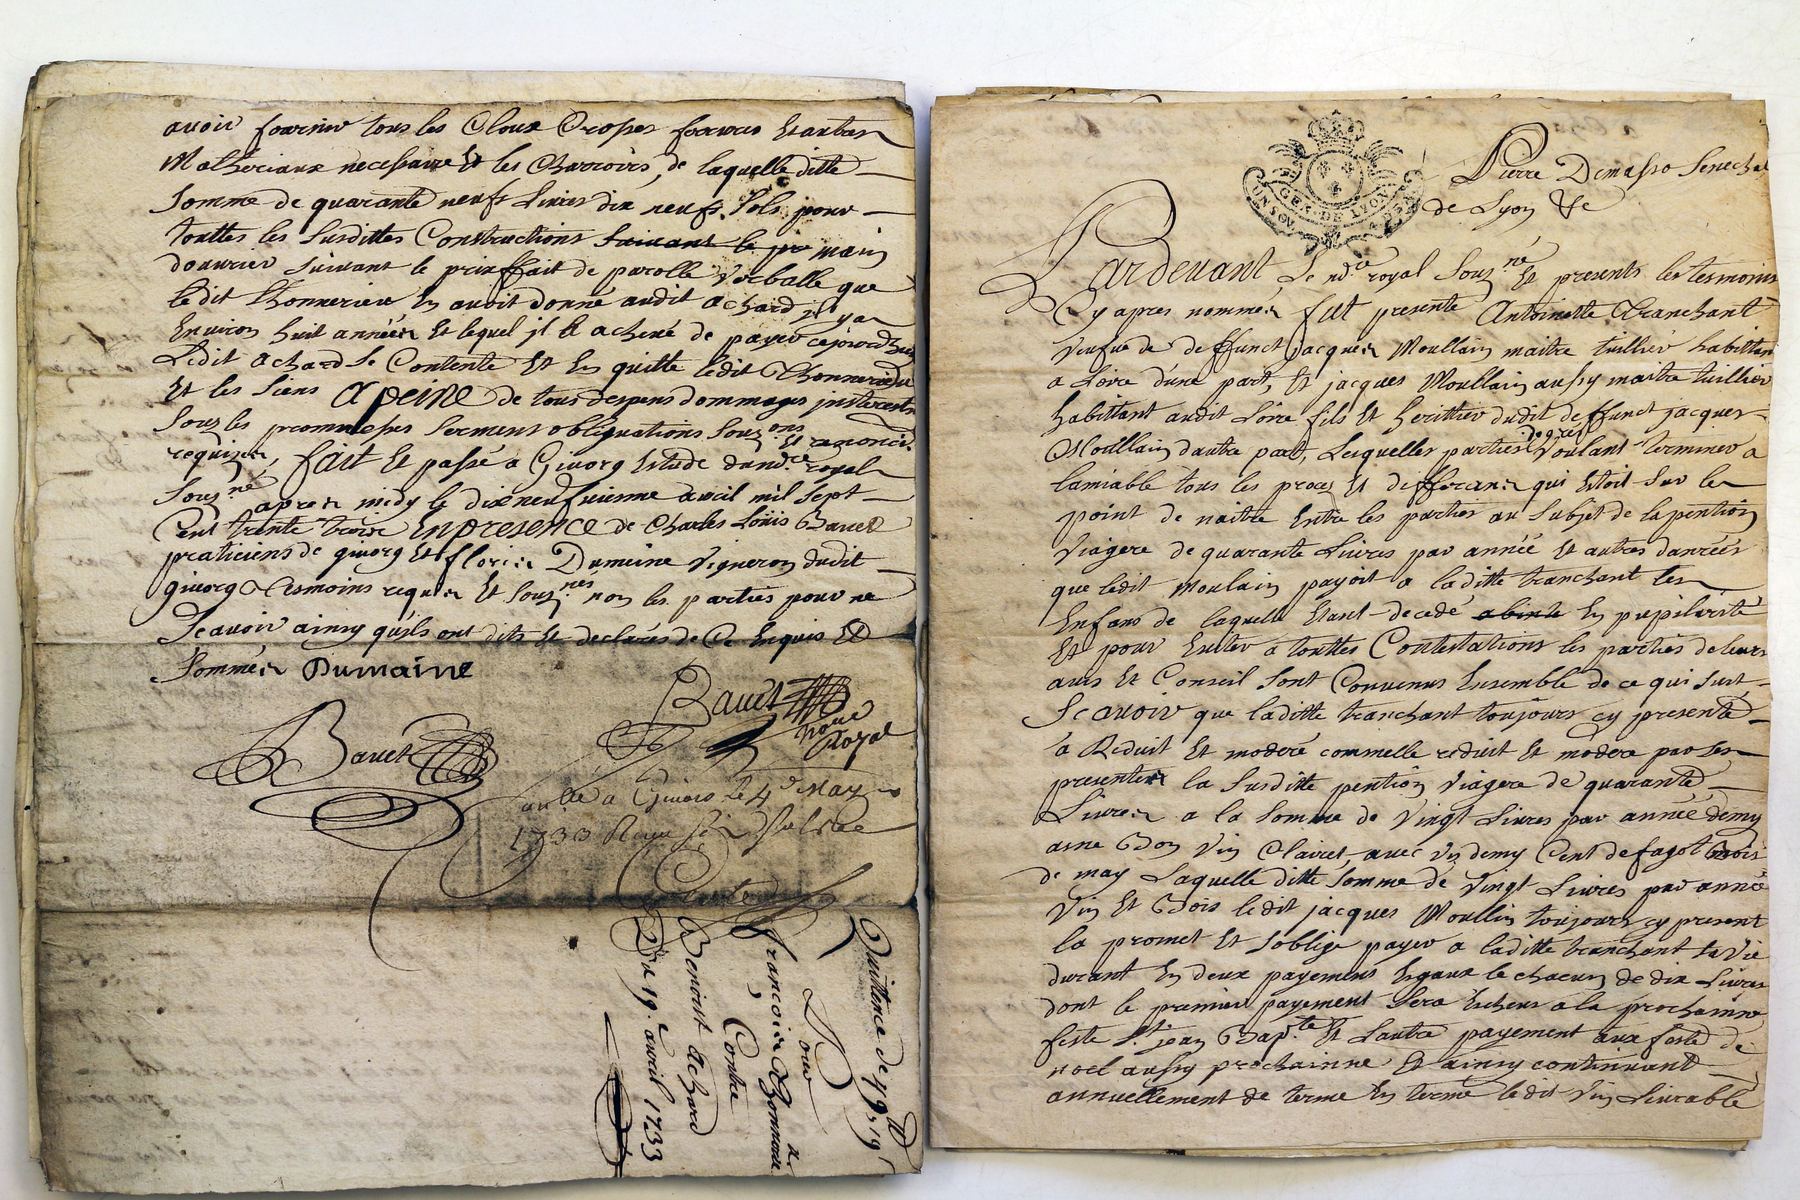 avoir fournir tous les Cloux Crosses ferrures Et autres
Matheriaux necessaire Et les Charrois, de laquelle ditte
Somme de quarante neufs Livres dix neufs Sols pour
touttes les Susdittes Constructions Suivant le pr main
douvrier Suivant le prixffait de parolle Verballe que
ledit Thonnerieu En avoit donné audit achard jl ya
Environ huit années Et lequel jl a achevé de payer cejourdhuy
Ledit achard Se Contente Et En quitte ledit Thonnerieu
Et les Siens A peine de tous despens dommages jnterests
Sous les promesses Serment obligations Souz.ons Et renoncia.
requises, fait Et passé a Givorg Estude dud. no.re royal
Souz.né apres midy le dixneufvieme avril mil Sept
Cent trente trois En presence de Charles Loüis Bavet
praticiens de givorg Et floris Dumaine Vigneron dudit
givorg tesmoins requis Et Souz.nés non les parties pour ne
Scavoir ainsy quils ont dits Et declarés de Ce Enquis Et
Sommés Dumaine
Bavet
Bavet
Noe
Royal
a Givors le 4e May
1733 Reçu
Quittence de 49ll 19s
Pour
francois Thonnerieu
Contre
Benoist achard
Du 19e avril 1733
GEN. DE LYON
Pierre Demasso Senechal
de Lyon &c
Pardevant Le no.re royal Souz.né Et presents les tesmoins
Cy apres nommés fut presente Antoinette tranchant
Veufve de deffunct jacques Moullain maitre tuillier habittant
a Loire d'une part, Et jacques Moullain aussy maitre tuillier
habittant audit Loire fils Et heritier dudit deffunct jacques
Moullain dautre part, Lesquelles parties de gres Voulant terminer a
lamiable tous les proces Et differans qui Estoit Sur le
point de naitre Entre les parties au Subjet de la pention
Viagere de quarante Livres par année Et autres danrées
que ledit Moulain payoit a laditte tranchant les
Enfans de laquelle Etant decedé abinte En pupilarité
Et pour Eviter a touttes Contestations les parties de leurs
avis Et Conseil Sont Convenus Ensemble de ce qui Suit
Scavoir que laditte tranchant toujours cy presente
a Reduit Et moderé commelle reduit Et modere par Ses
presentes la Susditte pention Viagere de quarante
Livres a la Somme de Vingt Livres par année demy
asne Bon Vin Clairet, avec Un demy Cent de fagot Bois
de may Laquelle ditte Somme de Vingt Livres par année
Vin Et Bois ledit jacques Moullin toujours cy present
la promet Et Soblige payer a laditte tranchant Sa Vie
durant En deux payement Egaux le chacun de dix Livres
dont le premier payement Sera Escheus a la prochaine
feste St. jean Bap.te Et Lautre payement aux feste de
noel aussy prochainne Et ainsy continuant
annuellement de terme En terme ledit Vin Livrable